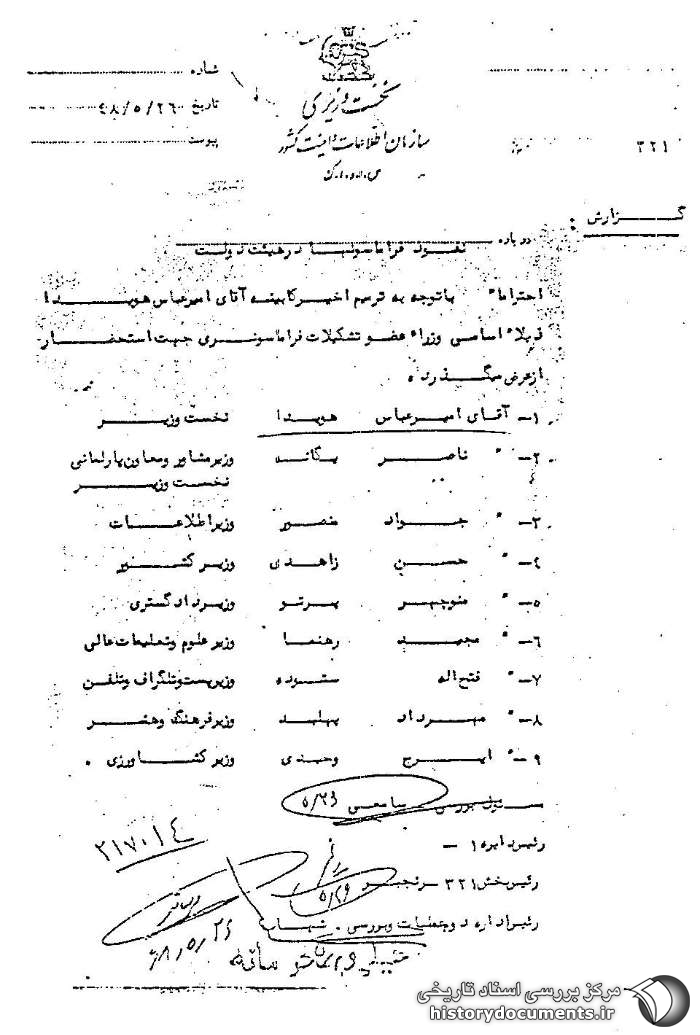 شماره
تاریخ ۴۸/۵/۲۶
پیوست
نخست وزیری
سازمان اطلاعات و امنیت کشور
س.ا.و.ا.ک
۳۲۱
گزارش :
درباره نفوذ فراماسونها در هیئت دولت
احتراماً باتوجه به ترمیم اخیر کابینه آقای امیرعباس هویدا
ذیلاً اسامی وزراء عضو تشکیلات فراماسونری جهت استحضار
ازعرض میگذرد.
۱- آقای امیرعباس هویدا نخست وزیر
۲- " ناصر یگانه وزیرمشاور ومعاون پارلمانی
نخست وزیر
۳- " جواد منصور وزیراطلاعات
۴- " حسن زاهدی وزیر کشور
۵- " منوچهر پرتو وزیردادگستری
۶- " مجید رهنما وزیر علوم وتعلیمات عالی
۷- " فتح اله ستوده وزیرپست وتلگراف وتلفن
۸- " مهرداد پهلبد وزیرفرهنگ وهنر
۹- " ایرج وحیدی وزیر کشاورزی .
مسئول بررسی
۵/۲۶
رئیس دایره ۱ -
۲۱۷۰۱۴
رئیس بخش ۳۲۱ - رنجبر
۵/۲۹
رئیس اداره دوم عملیات وبررسی .
۴۸/۵/۲۶
مرکز بررسی اسناد تاریخی
historydocuments.ir